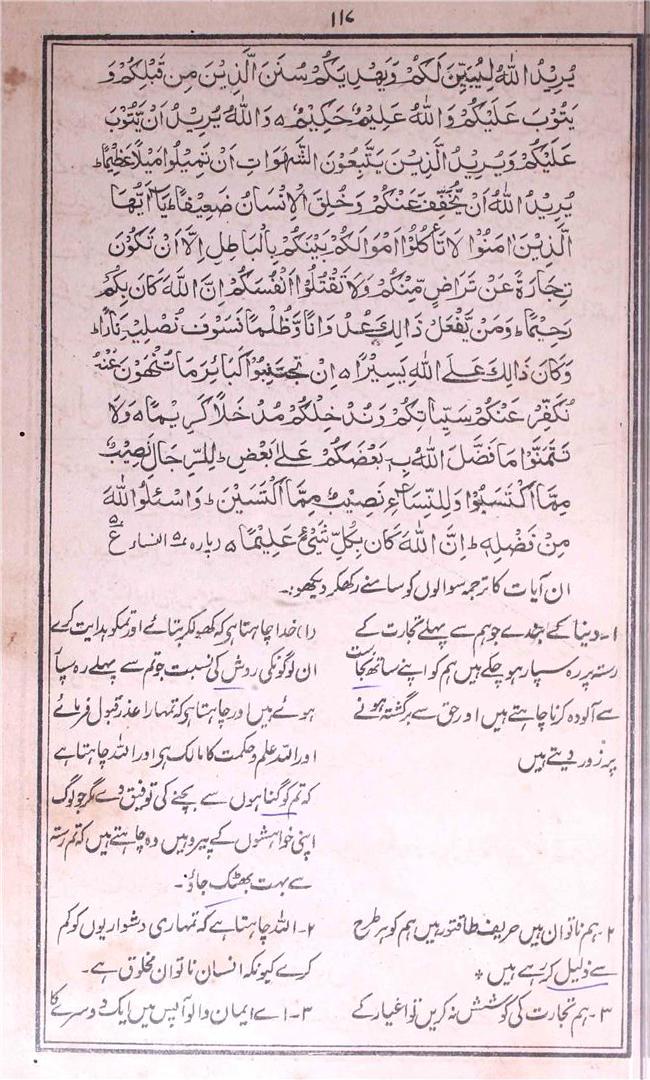 ۱۱۷
يُرِيْدُ اللّٰهُ لِيُبَيِّنَ لَكُمْ وَيَهْدِيَكُمْ سُنَنَ الَّذِيْنَ مِنْ قَبْلِكُمْ وَ
يَتُوْبَ عَلَيْكُمْ وَاللّٰهُ عَلِيْمٌ حَكِيْمٌ ه وَاللّٰهُ يُرِيْدُ اَنْ يَّتُوْبَ
عَلَيْكُمْ وَيُرِيْدُ الَّذِيْنَ يَتَّبِعُوْنَ الشَّهَوَاتِ اَنْ تَمِيْلُوْا مَيْلًا عَظِيْمًا ط
يُرِيْدُ اللّٰهُ اَنْ يُّخَفِّفَ عَنْكُمْ وَخُلِقَ الْاِنْسَانُ ضَعِيْفًا ط يَا اَيُّهَا
الَّذِيْنَ اٰمَنُوْا لَا تَأْكُلُوْا اَمْوَالَكُمْ بَيْنَكُمْ بِالْبَاطِلِ اِلَّا اَنْ تَكُوْنَ
تِجَارَةً عَنْ تَرَاضٍ مِّنْكُمْ وَلَا تَقْتُلُوْا اَنْفُسَكُمْ اِنَّ اللّٰهَ كَانَ بِكُمْ
رَحِيْمًا ط وَمَنْ يَّفْعَلْ ذَالِكَ عُدْوَانًا وَّظُلْمًا فَسَوْفَ نُصْلِيْهِ نَارًا ط
وَكَانَ ذَالِكَ عَلَى اللّٰهِ يَسِيْرًا ه اِنْ تَجْتَنِبُوْا كَبَائِرَ مَا تُنْهَوْنَ عَنْهُ
نُكَفِّرْ عَنْكُمْ سَيِّاٰتِكُمْ وَنُدْخِلْكُمْ مُدْخَلًا كَرِيْمًا ه وَلَا
تَتَمَنَّوْا مَا فَضَّلَ اللّٰهُ بِهٖ بَعْضَكُمْ عَلٰى بَعْضٍ ط لِلرِّجَالِ نَصِيْبٌ
مِمَّا اكْتَسَبُوْا وَلِلنِّسَاءِ نَصِيْبٌ مِمَّا اكْتَسَبْنَ ط وَاسْئَلُوْا اللّٰهَ
مِنْ فَضْلِهٖ ط اِنَّ اللّٰهَ كَانَ بِكُلِّ شَيْءٍ عَلِيْمًا ه (پارہ ۵ النساء ع ۵
ان آیات کا ترجمہ سوالوں کو سامنے رکھکر دیکھو:۔
۱۔ دنیا کے بندے جو ہم سے پہلے تجارت کے
رستہ پر رہ سپار ہو چکے ہیں ہم کو اپنے ساتھ نجاست
سے آلودہ کرنا چاہتے ہیں اور حق سے برگشتہ ہونے
پر زور دیتے ہیں
(۱) خدا چاہتا ہے کہ کھولکر بتائے اور تمکو ہدایت کرے
ان لوگوں کی روش کی نسبت جو تم سے پہلے رہ سپار
ہوئے ہیں اور چاہتا ہے کہ تمہارا عذر قبول فرمائے
اور اللہ علم و حکمت کا مالک ہے اور اللہ چاہتا ہے
کہ تم کو گناہوں سے بچنے کی توفیق دے مگر جو لوگ
اپنی خواہشوں کے پیرو ہیں وہ چاہتے ہیں کہ تم رستہ
سے بہت بھٹک جاؤ:۔
۲۔ ہم ناتوان ہیں حریف طاقتور ہیں ہم کو ہر طرح
سے ذلیل کر رہے ہیں *
۲۔ اللہ چاہتا ہے کہ تمہاری دشواریوں کو کم
کرے کیونکہ انسان ناتوان مخلوق ہے۔
۳۔ ہم تجارت کی کوشش نہ کریں تو اغیار کے
۳۔ اے ایمان والو آپس میں ایک دوسرے کا